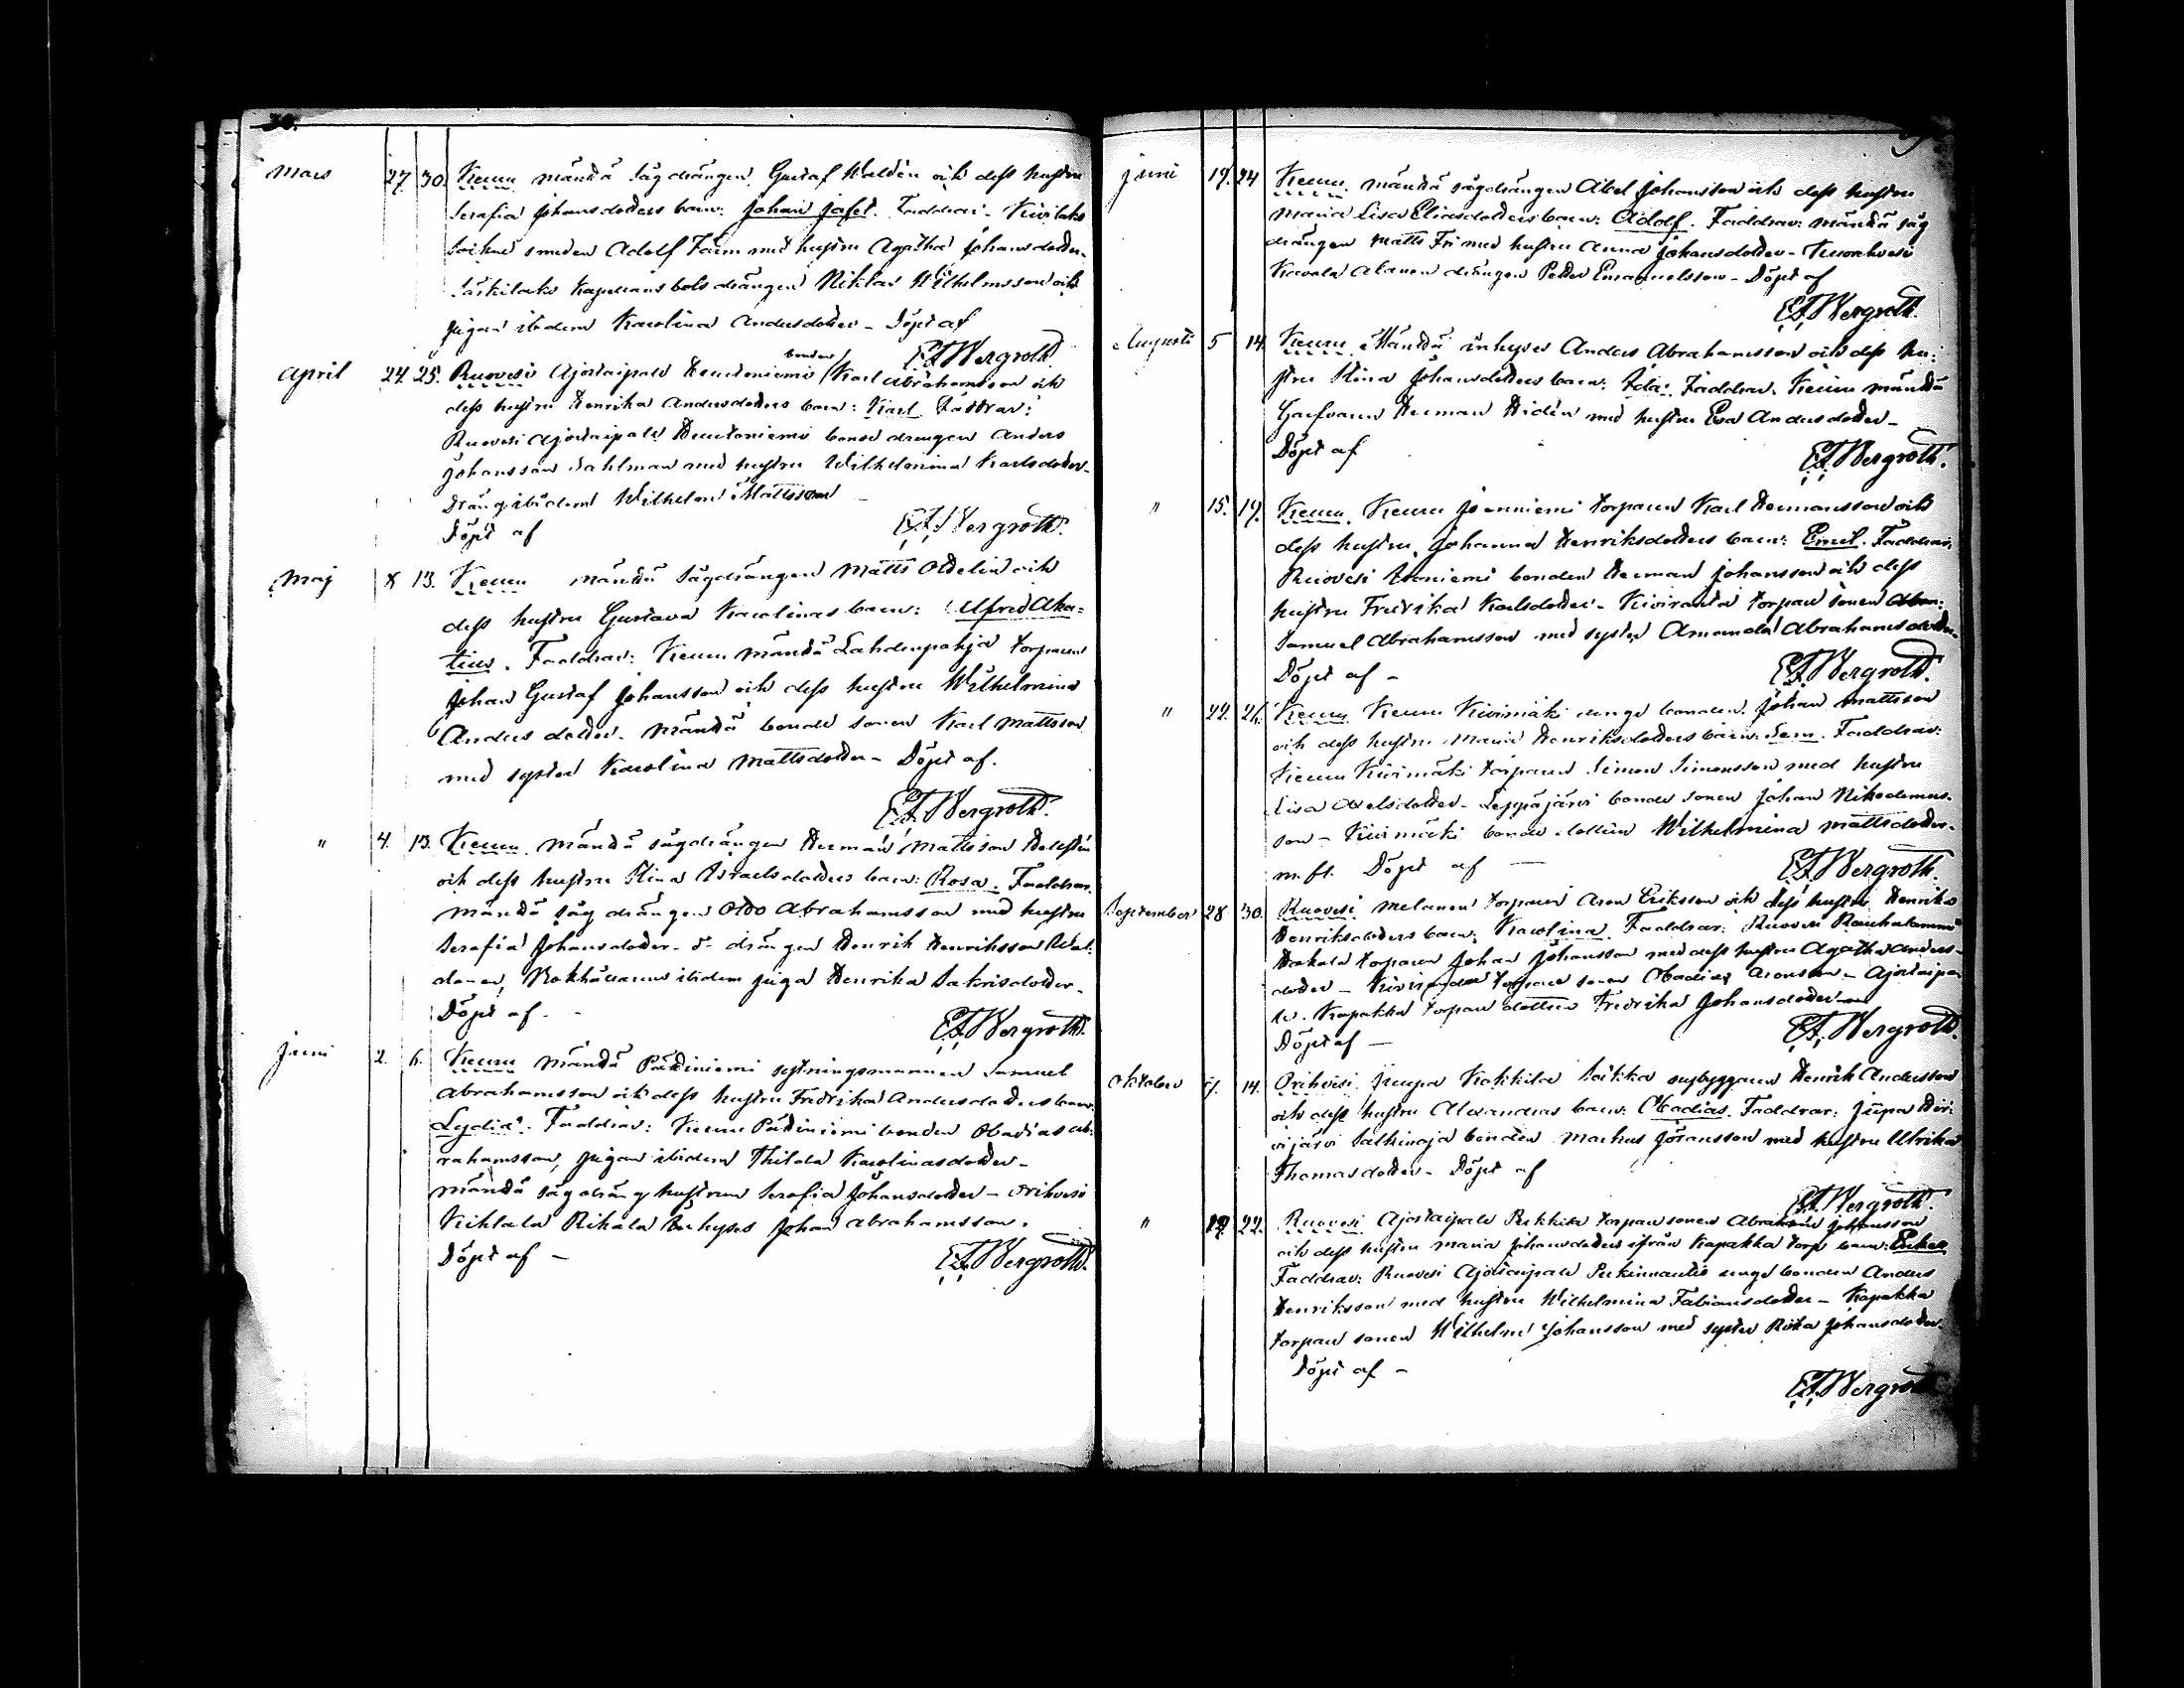 30.
Mars 27. 30. Keuru Mänttä sågdrängen Gustaf Waldén och dess hustru
Serafia Johansdotters barn: Johan Jafet. Faddrar: Kivilaks
smeden Adolf med hustru Agatha Johansdotter.
Särkilaks Kaplansbols drängen Niklas Wilhelmsson och
pigan ibidem Karolina Andersdotter – Döpt af
E.F. Bergroth.
April 24. 25. Ruovesi Ajostaipale bonden Karl Abrahamsson och
dess hustru Henrika Andersdotters barn: Karl. Faddrar:
Ruovesi Ajostaipale bonde drengen Anders
Johansson Dahlman med hustru Wilhelmina Karlsdotter.
Dräng ibidem Wilhelm Mattsson –
Döpt af E.F. Bergroth.
Maj 8 13. Keuru Mänttä Sågdrängen Matts Oddelin och
dess hustru Gustava Karolinas barn: Alfred Aka-
tius. Faddrar: Keuru Mänttä Lahdenpohja torparen
Johan Gustaf Johansson och dess hustru Wilhelmina
Anders dotter. Mänttä bonde sonen Karl Mattsson
med syster Karolina Mattsdotter – Döpt af.
E.F. Bergroth.
" 4. 13. Keuru. Mänttä sågdrängen Herman Mattsson
och dess hustru Stina Israelsdotters barn: Rosa. Faddrar.
Mänttä såg drängen Otto Abrahamsson med hustru
Serafia Johansdotter. d:o drängen Henrik Henriksson Wal-
ibidem piga Henrika Sakrisdotter.
Döpt af. –
E.F. Bergroth.
Juni 2. 6. Keuru Mänttä Pädiniemi sytningsmannen Samuel
Abrahamsson och dess hustru Fredrika Andersdotters barn:
Lydia. Faddrar: Keuru Pädiniemi bonden Obadias Ab-
rahamsson, pigan ibidem Thilda Karolinasdotter –
Mänttä sågdräng hustrun Serafia Johansdotter – Orihvesi
Kihlala Rihala inhyses Johan Abrahamsson.
Döpt af –
E.F. Bergroth.
Juni 17. 24 Keuru. Mänttä sågdrängen Abel Johansson och dess hustru
Maria Lisa Eliasdotters barn: Adolf. Faddrar: Mänttä såg
drängen Matts Fri med hustru Anna Johansdotter –
Alanen drängen Petter Emanuelsson – Döpt af
E.F. Bergroth.
Augusti 5 14. Keuru Mänttä inhyses Anders Abrahamsson och dess hu-
stru Stina Johansdotters barn: Ida. Faddrar. Keuru Mänttä
Garfvaren Herman Hidén med hustru Eva Andersdotter –
Döpt af
E.F. Bergroth.
" 15. 19. Keuru. Keuru Joenniemi torparen Karl Hermansson och
dess hustru Johanna Henriksdotters barn: Emil. Faddrar:
Ruovesi bonden Herman Johansson och dess
hustru Fredrika Karlsdotter – Kiviranta torpare sonen
Samuel Abrahamsson med syster Amanda Abrahamsdotter.
Döpt af –
E.F. Bergroth.
" 22. 26. Keuru. Keuru Kivimäki unge bonden Johan Mattsson
och dess hustru Maria Henriksdotters barn: Sem. Faddrar:
Keuru Kivimäki torparen Simon Simonsson med hustru
Lisa Axelsdotter – Leppäjärvi bonde sonen Johan Nikodemus-
son – Kivimäki bonde dottern Wilhelmina Mattsdotter.
m. fl. Döpt af –
E.F. Bergroth.
September 28 30. Ruovesi Melanen torparen Aron Eriksson och dess hustru Henrika
Henriksdotters barn: Karolina. Faddrar: Ruovesi
torparen Johan Johansson med dess hustru Agatha Anders-
dotter – torpare sonen Obadias Aronsson – Ajostaipa-
le Kapakka torpar dottren Fredrika Johansdotter
Döpt af –
E.F. Bergroth.
Oktober 9. 14. Orihvesi Juupa Kokkila nybyggaren Henrik Andersson
och dess hustru Alexandras barn: Obadias. Faddrar: Juupa
bonden Markus Göransson med hustru Ulrika
Thomasdotter – Döpt af
E.F. Bergroth.
" 19. 22. Ruovesi Ajostaipale torparsonen Abraham Johansson
och dess hustru Maria Johansdotters ifrån Kapakka torp barn:
Faddrar: Ruovesi Ajostaipale unge bonden Anders
Henriksson med hustru Wilhelmina Fabiansdotter – Kapakka
torpare sonen Wilhelm Johansson med syster Johansdotter.
Döpt af –
E.F. Bergroth